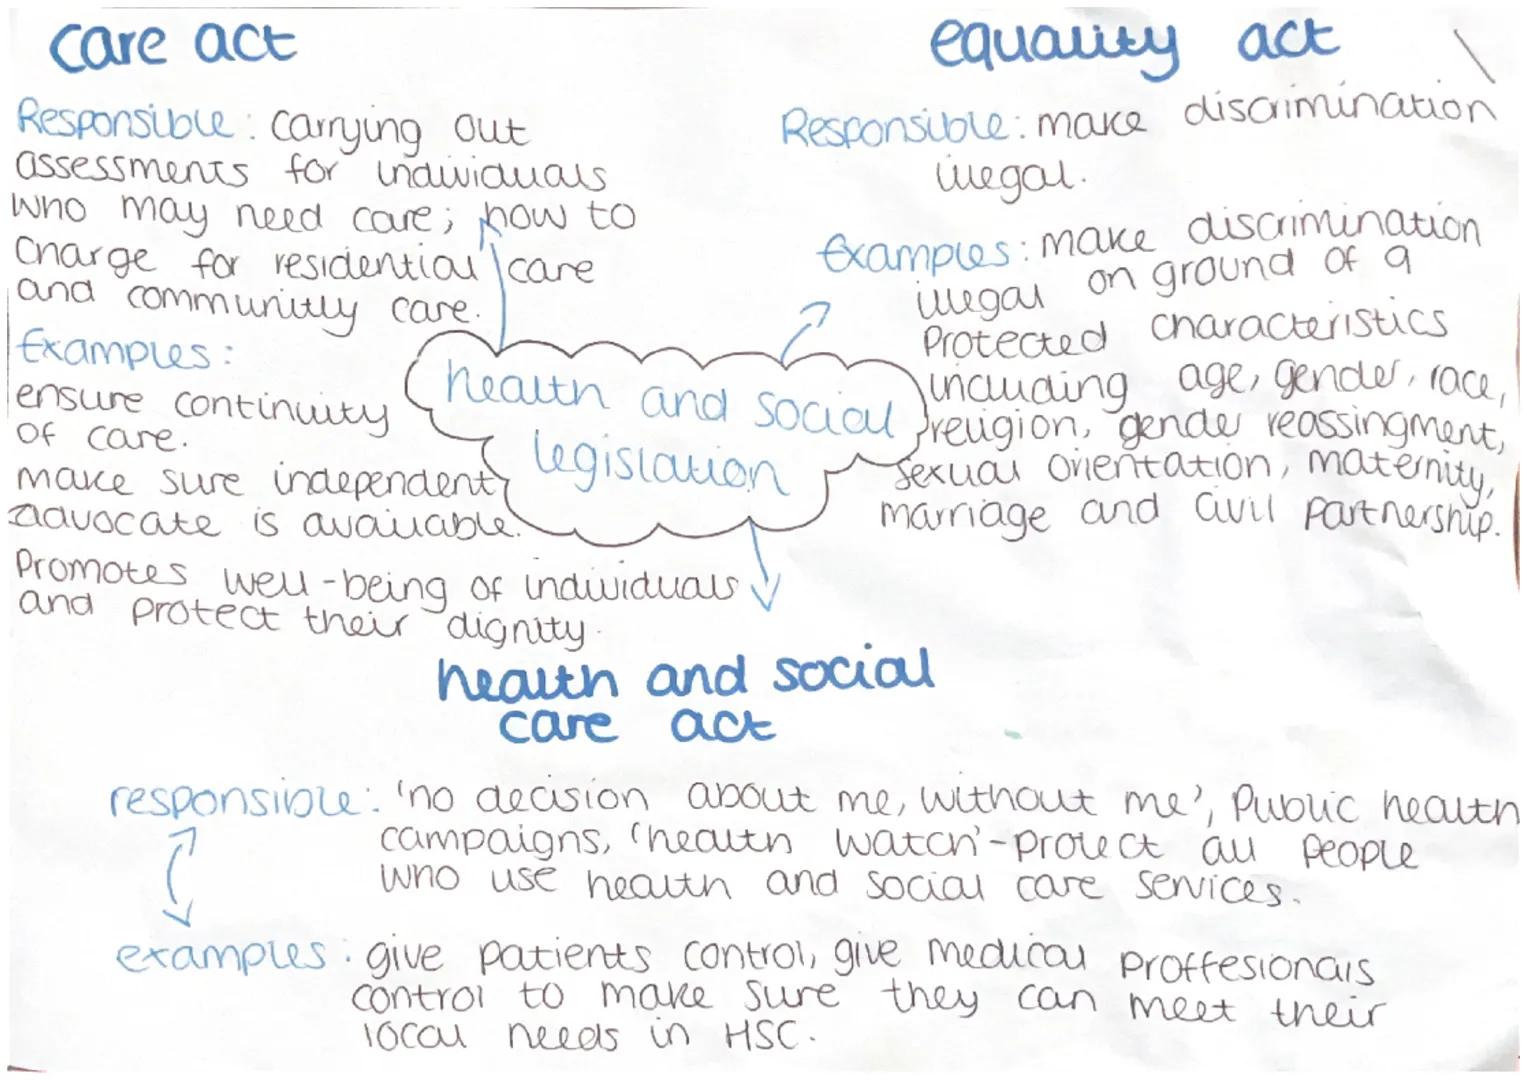 care act
Responsible: carrying out
assessments for individuals
who may need care; how to
charge for residential care
and communitly care.
Examples:
ensure continuity
of care.
make sure independent
advocate is available.
Promotes well-being of individuals
and protect their dignity.
equality act
Responsible: make discrimination
illegal.
Examples: make discrimination
illegal on ground of a
Protected characteristics
including age, gender, race,
religion, gender reassingment,
sexual orientation, maternity,
marriage and civil partnership.
health and social
legislation
health and social
care act
responsible: 'no decision about me, without me', Public health
campaigns, 'health watch'-protect all people
who use health and social care services.
examples: give patients control, give medical proffesionals
control to make sure they can meet their
local needs in HSC.